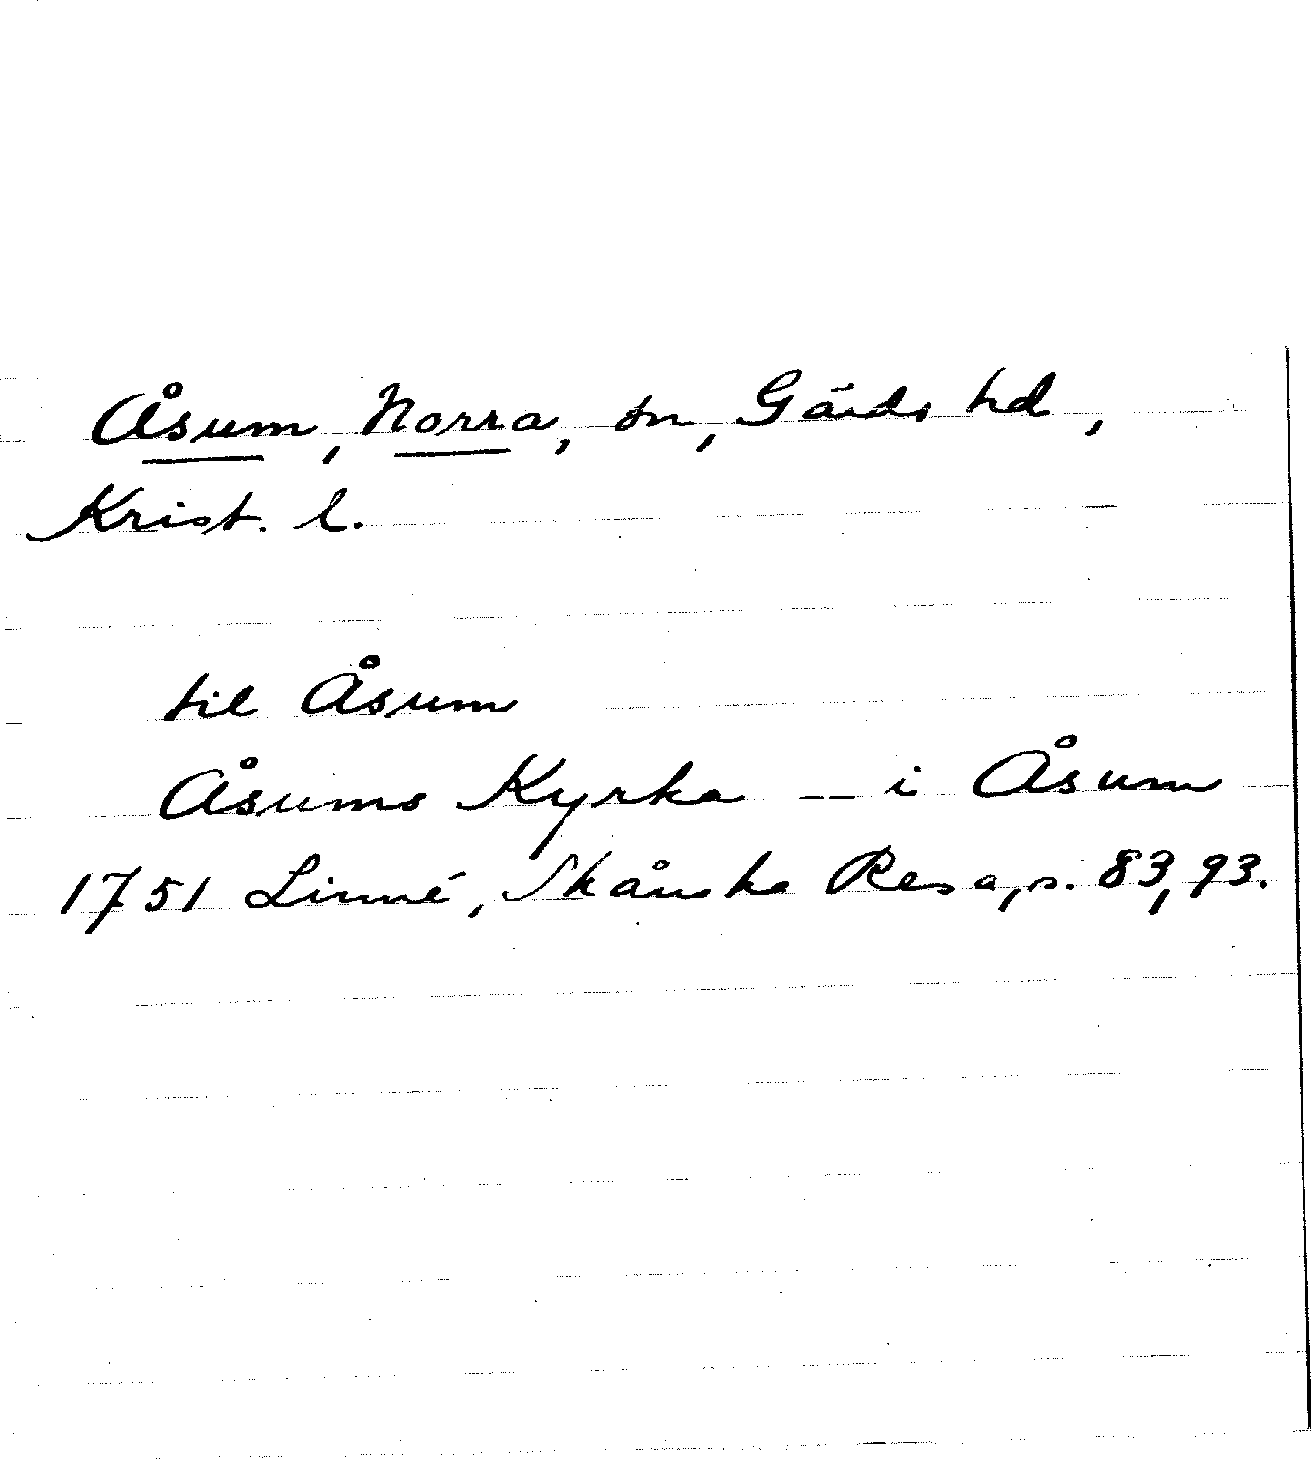 Åsum, Norra, sn, Gärds hd,
Krist. l.
til Åsum
Åsums Kyrka -- i Åsum
1751 Linné, Skånska Resa, s. 83, 93.